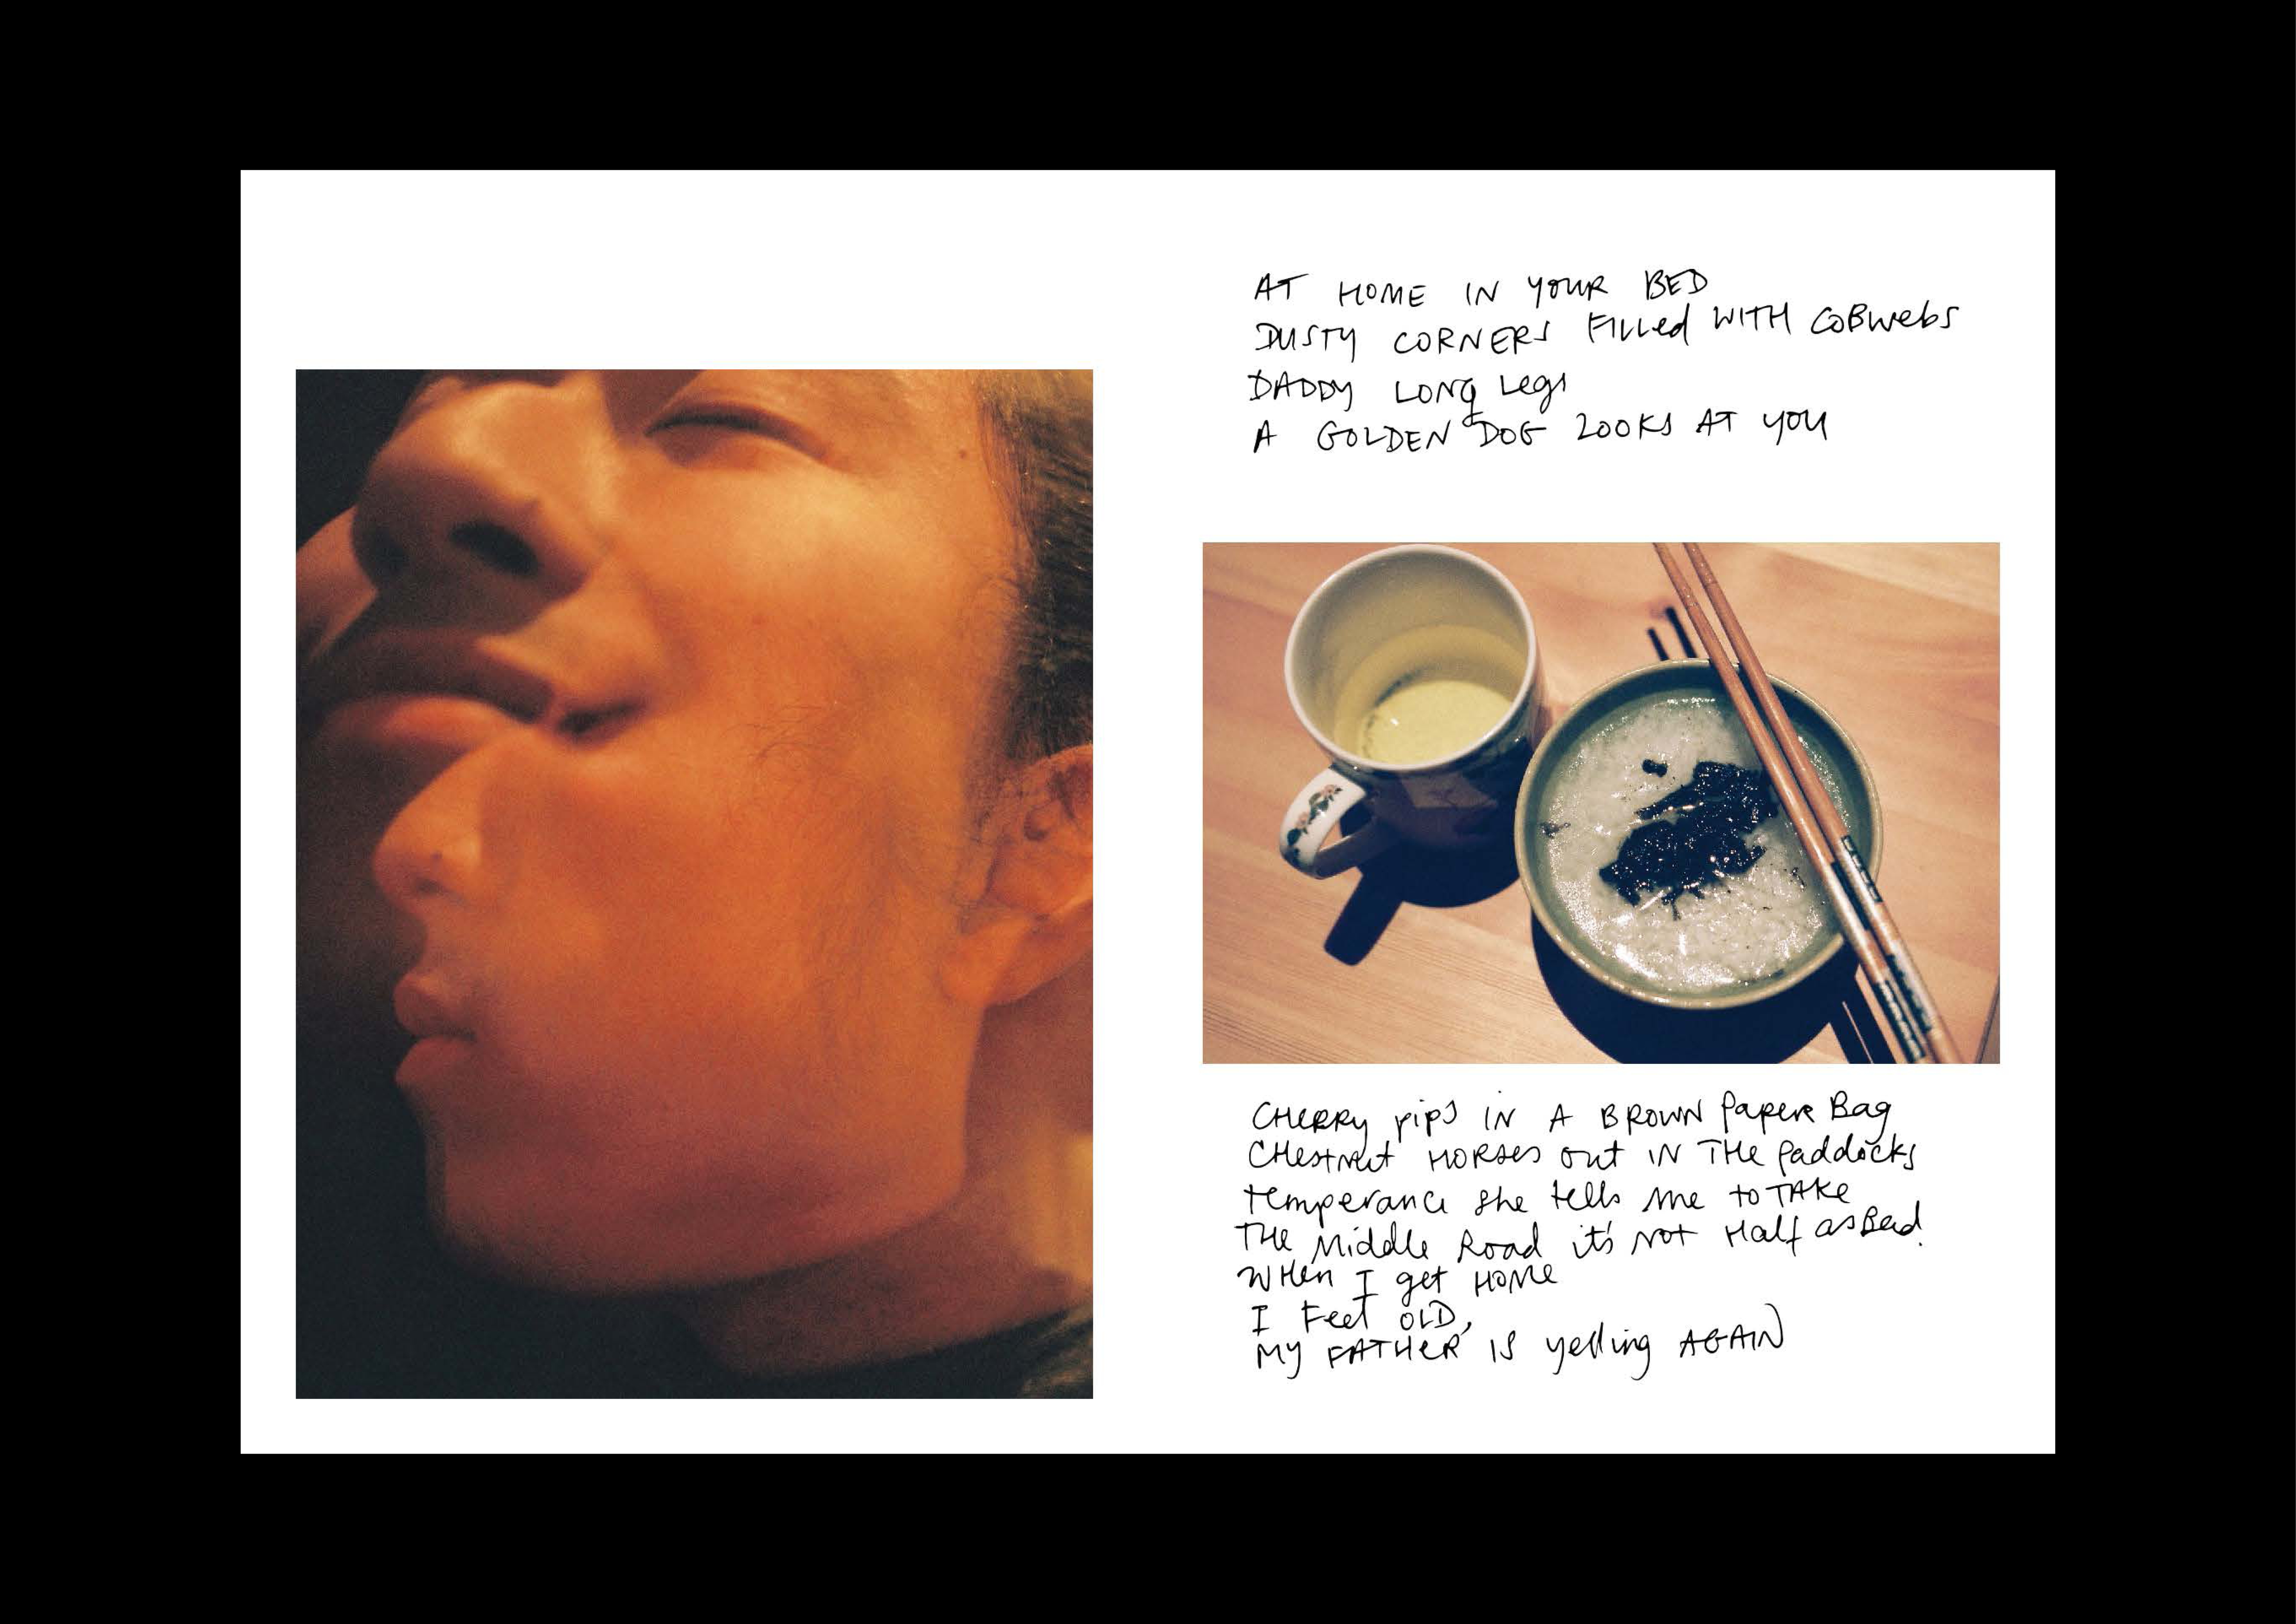 AT HOME IN YOUR BED
DUSTY CORNERS FILLed WITH COBwebs
DADDY LONG Legs
A GOLDEN DOG LOOKS AT YOU
CHERRY pips IN A BROWN Paper Bag
CHestnut HORSes out IN THe Paddocks
temperance she tells me to TAKe
THe Middle Road it's Not Half as Bad.
WHen I get HOMe
I Feel OLD,
MY FATHER IS yelling AGAIN